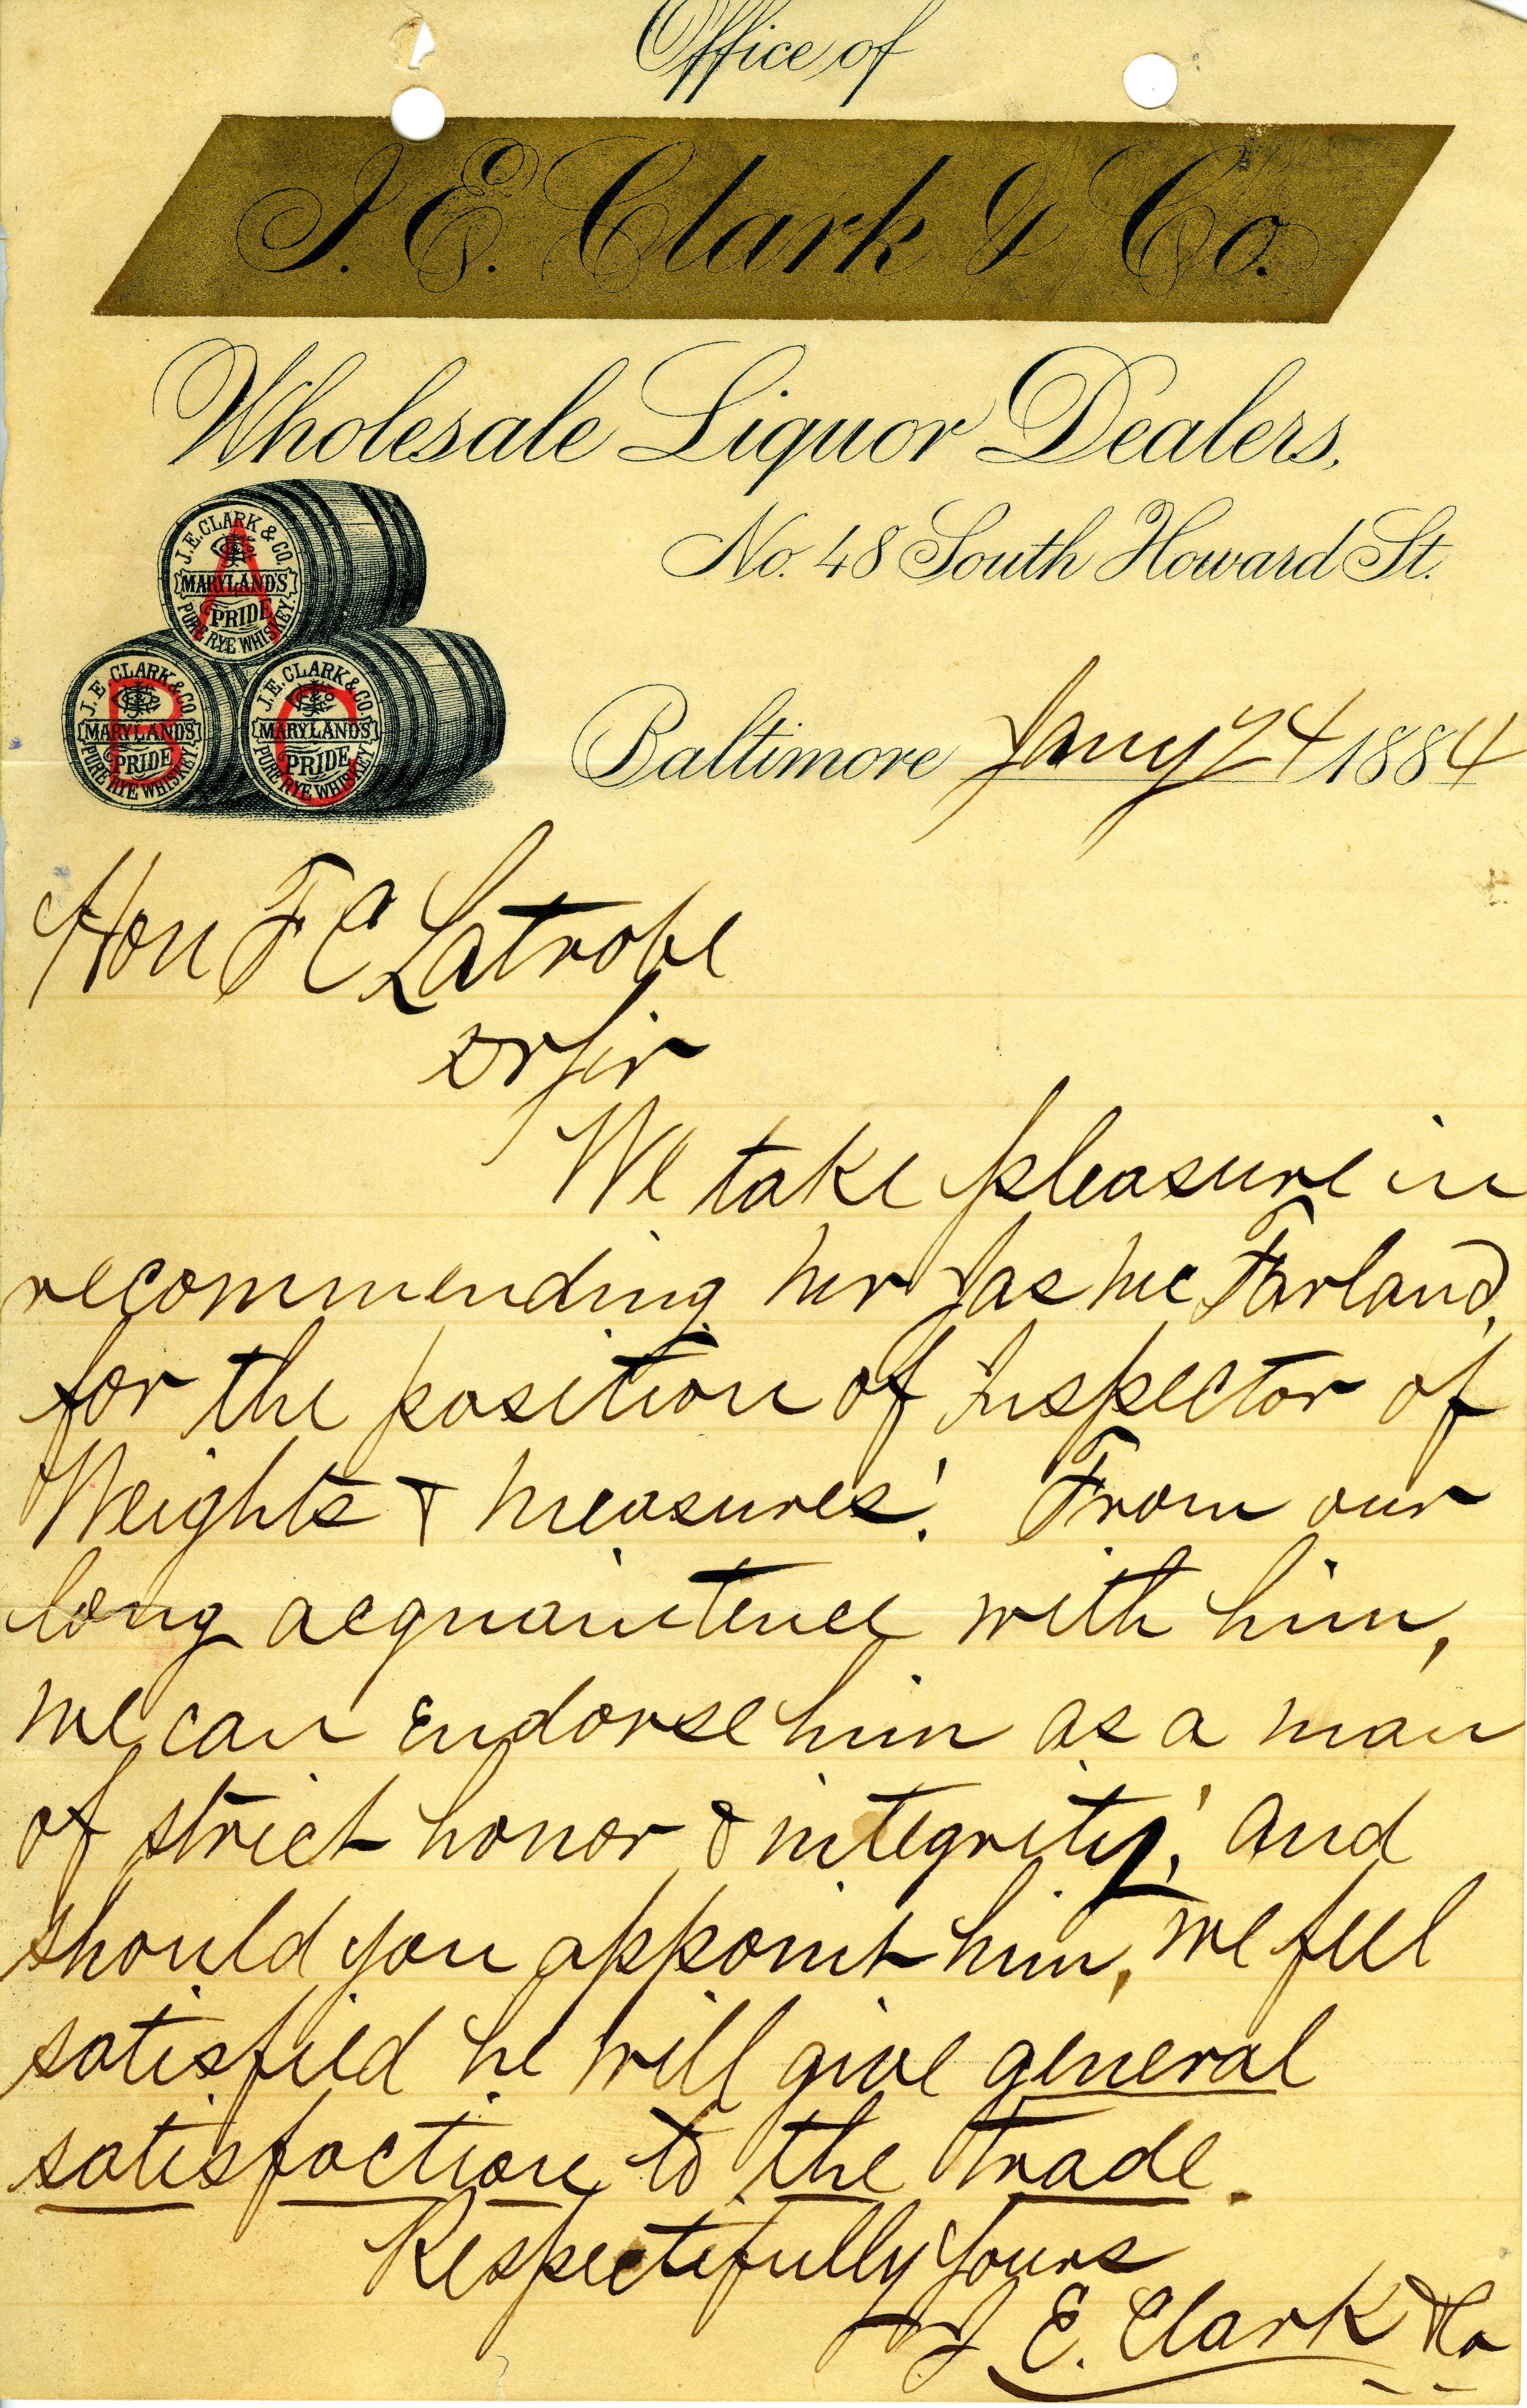 Office of
J. E. Clark & Co.
Wholesale Liquor Dealers,
No. 48 South Howard St.
J. E. CLARK & CO.
A
MARYLANDS
PRIDE
PURE RYE WHISKEY
J. E. CLARK & CO.
B
MARYLANDS
PRIDE
PURE RYE WHISKEY
J. E. CLARK & CO.
C
MARYLANDS
PRIDE
PURE RYE WHISKEY
Baltimore Jany 24 1884
Hon F C Latrobe
Dr Sir
We take pleasure in
recommending Mr Jas McFarland,
for the position of Inspector of
Weights & Measures. From our
long acquaintence with him,
we can Endorse him as a man
of strict honor & integrity, and
should you appoint him, we feel
satisfied he will give general
satisfaction to the trade.
Respectfully Yours
J E. Clark & Co